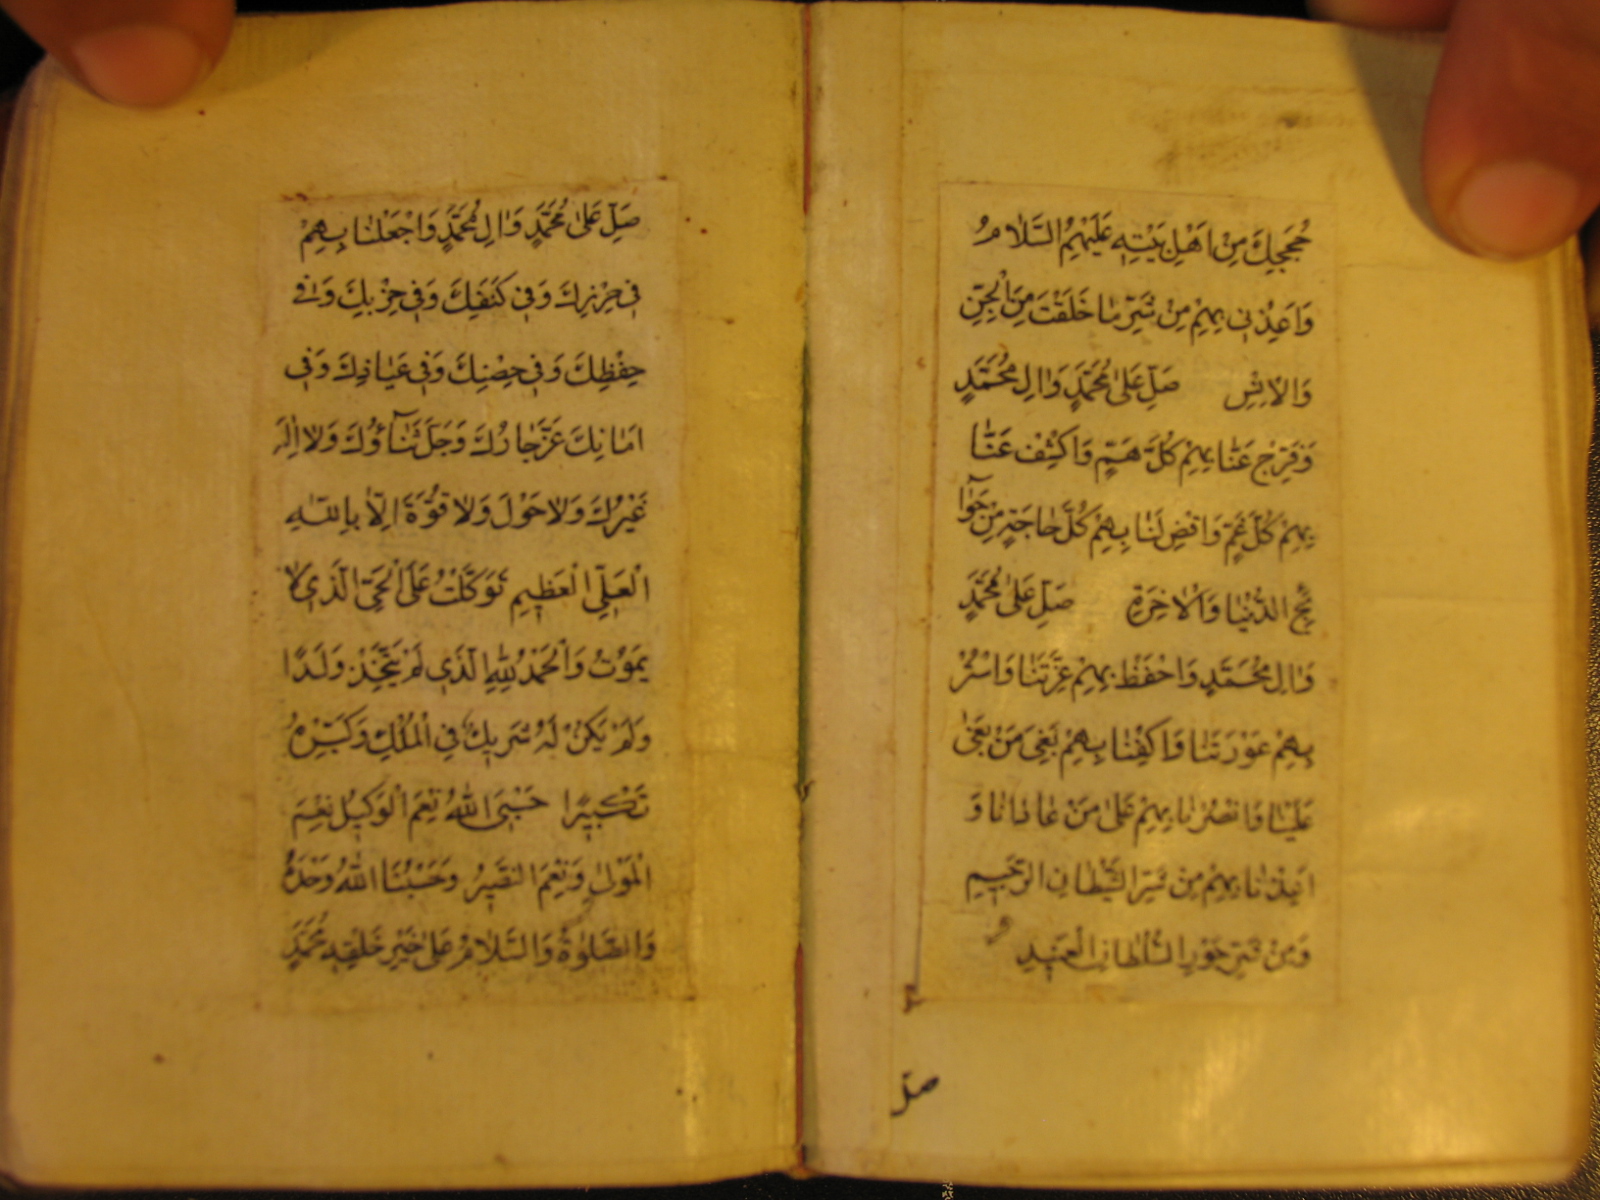 حُجَجِكَ مِنْ اَهْلِ بَيْتِهِ عَلَيْهِمُ السَّلَامُ
وَاَعِذْنِي بِهِمْ مِنْ شَرِّ مَا خَلَقْتَ مِنَ الْجِنِّ
وَالْاِنْسِ صَلِّ عَلٰى مُحَمَّدٍ وَاٰلِ مُحَمَّدٍ
وَفَرِّجْ عَنَّا بِهِمْ كُلَّ هَمٍّ وَاكْشِفْ عَنَّا
بِهِمْ كُلَّ غَمٍّ وَاقْضِ لَنَا بِهِمْ كُلَّ حَاجَةٍ مِنْ حَوَآا
ئِجِ الدُّنْيَا وَالْاٰخِرَةِ صَلِّ عَلٰى مُحَمَّدٍ
وَاٰلِ مُحَمَّدٍ وَاحْفَظْ بِهِمْ عِزَّتَنَا وَاسْتُرْ
بِهِمْ عَوْرَتَنَا وَاكْفِنَا بِهِمْ بَغْيَ مَنْ بَغٰى
عَلَيْنَا وَانْصُرْنَا بِهِمْ عَلٰى مَنْ عَادَانَا وَ
اَعِذْنَا بِهِمْ مِنْ شَرِّ الشَّيْطَانِ الرَّجِيمِ
وَمِنْ شَرِّ جَوْرِ السُّلْطَانِ الْعَنِيدِ
صل
صَلِّ عَلٰى مُحَمَّدٍ وَاٰلِ مُحَمَّدٍ وَاجْعَلْنَا بِهِمْ
فِي حِرْزِكَ وَفِي كَنَفِكَ وَفِي حِزْبِكَ وَفِي
حِفْظِكَ وَفِي حِصْنِكَ وَفِي عَيَاذِكَ وَفِي
اَمَانِكَ عَزَّ جَارُكَ وَجَلَّ ثَنَآؤُكَ وَلَا اِلٰهَ
غَيْرُكَ وَلَا حَوْلَ وَلَا قُوَّةَ اِلَّا بِاللّٰهِ
الْعَلِيِّ الْعَظِيمِ تَوَكَّلْتُ عَلَى الْحَيِّ الَّذِي لَا
يَمُوتُ وَالْحَمْدُ لِلّٰهِ الَّذِي لَمْ يَتَّخِذْ وَلَدًا
وَلَمْ يَكُنْ لَهُ شَرِيكٌ فِي الْمُلْكِ وَكَبِّرْهُ
تَكْبِيرًا حَسْبِيَ اللّٰهُ نِعْمَ الْوَكِيلُ نِعْمَ
الْمَوْلٰى وَنِعْمَ النَّصِيرُ وَحَسْبُنَا اللّٰهُ وَحْدَهُ
وَالصَّلٰوةُ وَالسَّلَامُ عَلٰى خَيْرِ خَلْقِهِ مُحَمَّدٍ